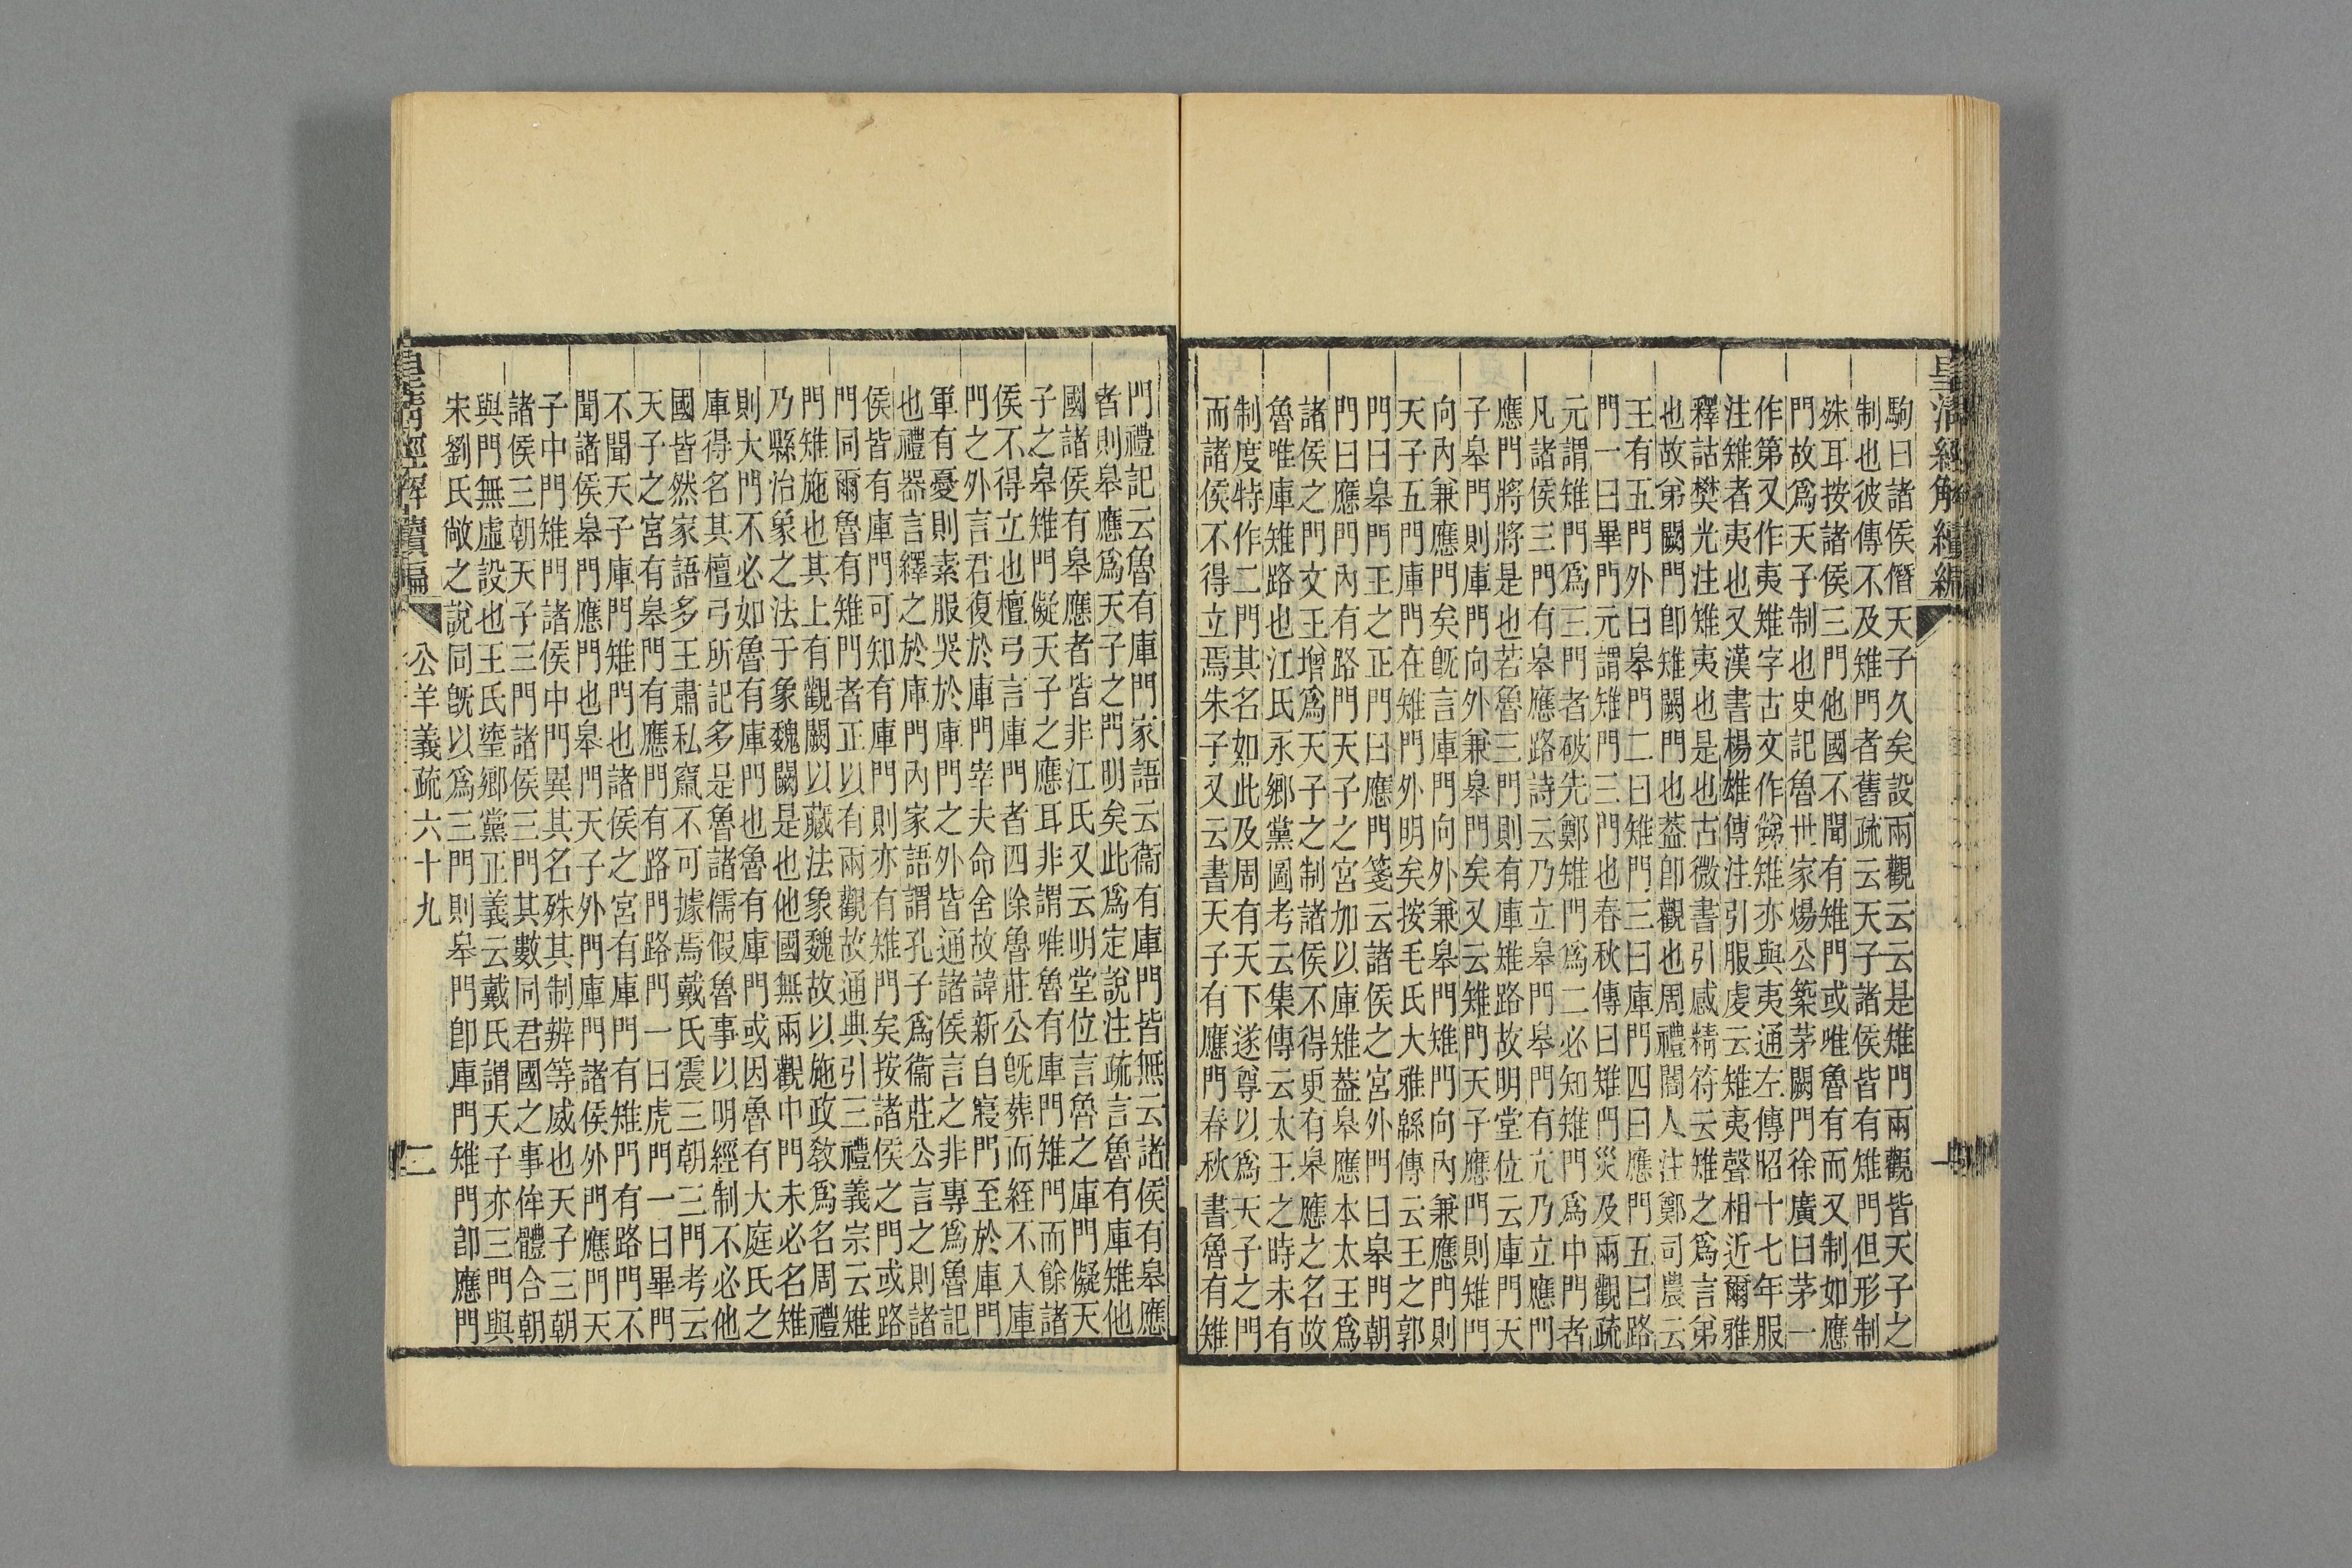 皇清經解續編
駒曰諸侯僭天子久矣設兩觀云云是雉門兩觀皆天子之
制也彼傳不及雉門者舊疏云天子諸侯皆有雉門但形制
殊耳按諸侯三門他國不聞有雉門或唯魯有而又制如應
門故爲天子制也史記魯世家煬公築茅闕門徐廣曰茅一
作第又作夷雉字古文作𨾔雉亦與夷通左傳昭十七年服
注雉者夷也又漢書楊雄傳注引服虔云雉夷聲相近爾雅
釋詁樊光注雉夷也是也古微書引感精符云雉之爲言弟
也故弟闕門卽雉闕門也葢卽觀也周禮閽人注鄭司農云
王有五門外曰皋門二曰雉門三曰庫門四曰應門五曰路
門一曰畢門元謂雉門三門也春秋傳曰雉門災及兩觀疏
元謂雉門爲三門者破先鄭雉門爲二必知雉門爲中門者
凡諸侯三門有皋應路詩云乃立皋門皋門有亢乃立應門
應門將將是也若魯三門則有庫雉路故明堂位云庫門天
子皋門則庫門向外兼皋門矣又云雉門天子應門則雉門
向內兼應門矣旣言庫門向外兼皋門雉門向內兼應門則
天子五門庫門在雉門外明矣按毛氏大雅緜傳云王之郭
門曰皋門王之正門曰應門箋云諸侯之宮外門曰皋門朝
門曰應門內有路門天子之宮加以庫雉葢皋應本太王爲
諸侯之門文王增爲天子之制諸侯不得更有皋應之名故
魯唯庫雉路也江氏永鄉黨圖考云集傳云太王之時未有
制度特作二門其名如此及周有天下遂尊以爲天子之門
而諸侯不得立焉朱子又云書天子有應門春秋書魯有雉
門禮記云魯有庫門家語云衞有庫門皆無云諸侯有皋應
者則皋應爲天子之門明矣此爲定說注疏言魯有庫雉他
國諸侯有皋應者皆非江氏又云明堂位言魯之庫門儗天
子之皋雉門儗天子之應耳非謂唯魯有庫門雉門而餘諸
侯不得立也檀弓言庫門者四除魯莊公旣葬而絰不入庫
門之外言君復於庫門宰夫命舍故諱新自寢門至於庫門
軍有憂則素服哭於庫門之外皆通諸侯言之非專爲魯記
也禮器言繹之於庫門內家語謂孔子爲衞莊公言之則諸
侯皆有庫門可知有庫門則亦有雉門矣按諸侯之門或路
門同爾魯有雉門者正以有兩觀故通典引三禮義宗云雉
門雉施也其上有觀闕以藏法象魏故以施政敎爲名周禮
乃縣治象之法于象魏闕是也他國無兩觀中門未必名雉
則大門不必如魯有庫門也魯有庫門或因魯有大庭氏之
庫得名其檀弓所記多是魯諸儒假魯事以明經制不必他
國皆然家語多王肅私竄不可據焉戴氏震三朝三門考云
天子之宮有皋門有應門有路門路門一曰虎門一曰畢門
不聞天子庫門雉門也諸侯之宮有庫門有雉門有路門不
聞諸侯皋門應門也皋門天子外門庫門諸侯外門應門天
子中門雉門諸侯中門異其名殊其制辨等威也天子三朝
諸侯三朝天子三門諸侯三門其數同君國之事侔體合朝
與門無虛設也王氏瑬鄉黨正義云戴氏謂天子亦三門與
宋劉氏敞之說同旣以爲三門則皋門卽庫門雉門卽應門
皇淸經解續編
公羊義疏六十九
二